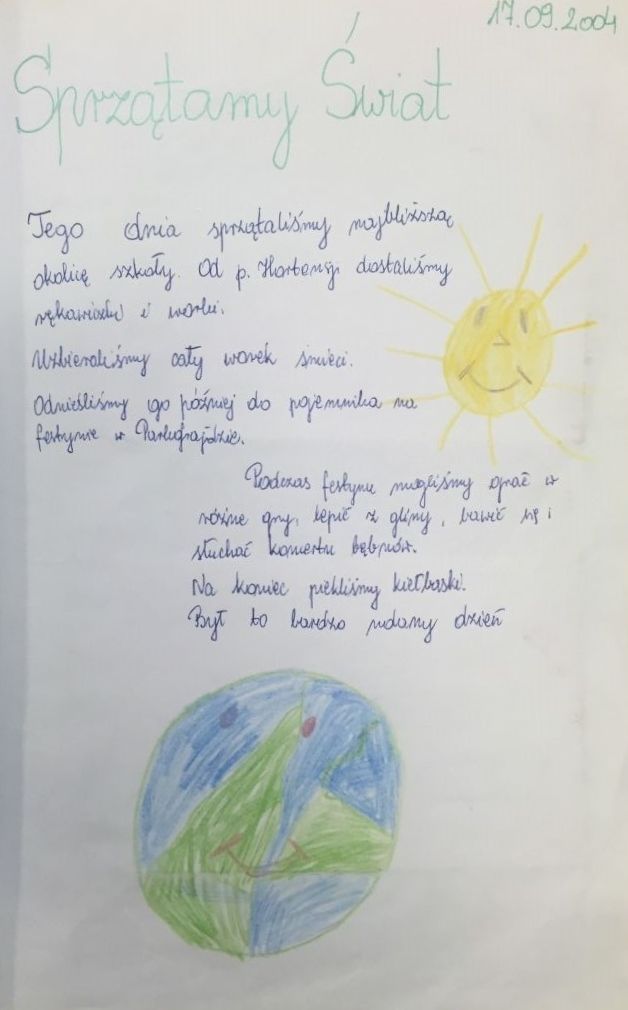 17.09.2004
Sprzątamy Świat
Tego dnia sprzątaliśmy najbliższą
okolicę szkoły. Od p. Hortensji dostaliśmy
rękawiczki i worki.
Uzbieraliśmy cały worek śmieci.
Odnieśliśmy go później do pojemnika na
festynie w
Podczas festynu mogliśmy grać w
różne gry, lepić z gliny, bawić się i
słuchać koncertu bębnów.
Na koniec piekliśmy kiełbaski.
Był to bardzo udany dzień